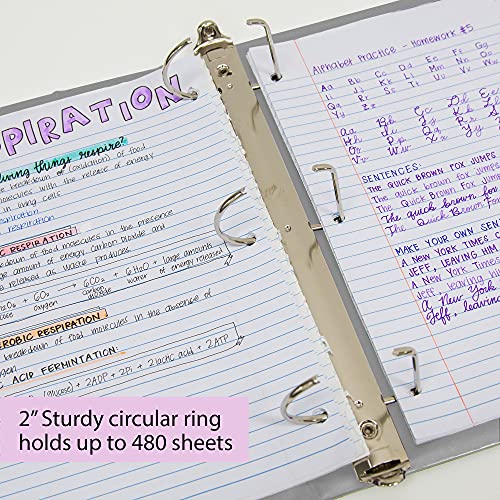 PIRATION
living things respire?
breakdown of (oxidation) of food
molecules with the release of energy
in living cells
respiration
respiration
RESPIRATION
down of food molecules in the presence
amount of energy carbon dioxide and
released as waste produces.
6O₂ → 6CO₂ + 6H₂O + large amounts
oxygen carbon dioxide water of energy released
AEROBIC RESPIRATION
breakdown of food molecules in the absence of
ACID FERMINTATION:
(glucose) + 2ADP + 2Pi → 2 lactic acid + 2ATP
Alphabet Practice - Homework #5
Aa Bb Cc Dd Ee Ff Gg Hh
Ii Jj Kk Ll Mm Nn Oo Pp
Qq Rr Ss Tt Uu Vv Ww Xx
Yy Zz
SENTENCES:
THE QUICK BROWN FOX JUMPS
The quick brown fox jumps
The quick brown fox jumps
The quick brown fox
The Quick Brown Fox
MAKE YOUR OWN SEN
A NEW YORK TIMES C
JEFF, LEAVING HIM
A New York Times
Jeff leaving him
A New York
Jeff, leavin
2” Sturdy circular ring
holds up to 480 sheets